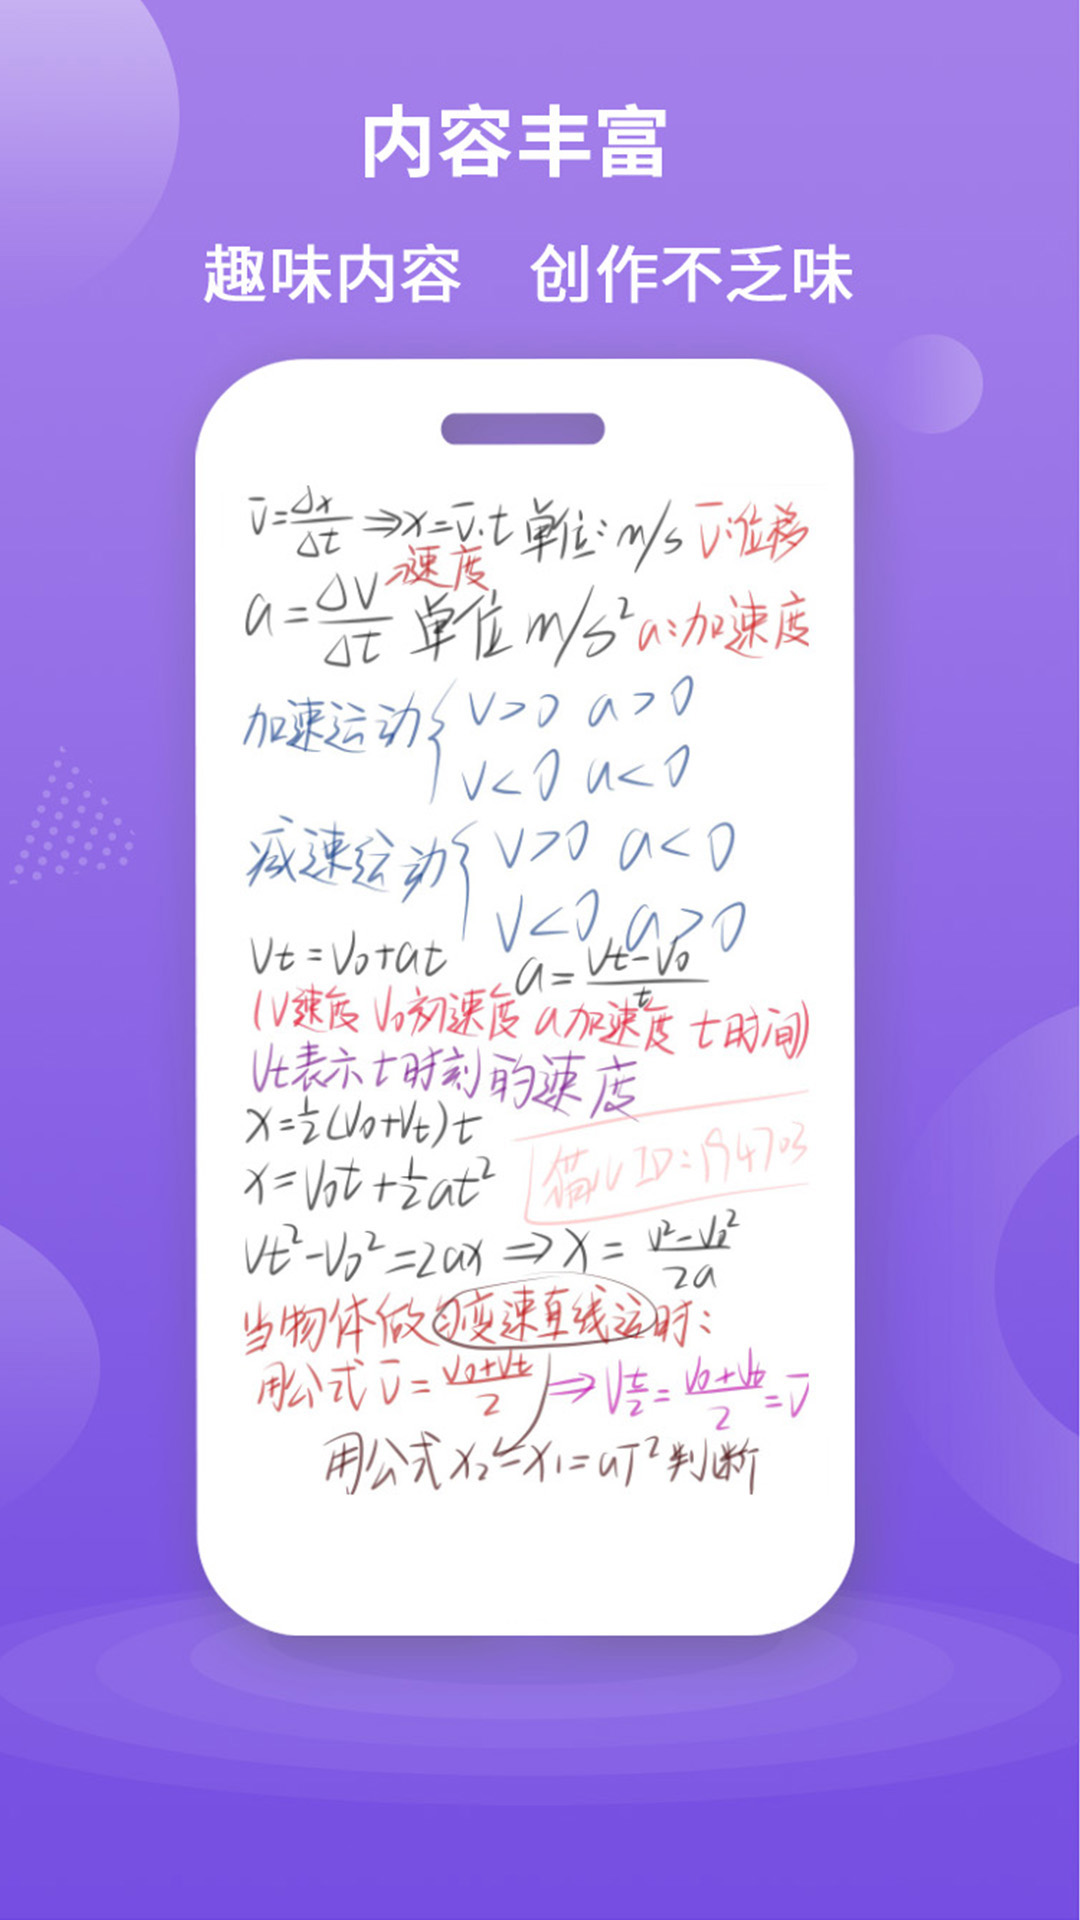 内容丰富
趣味内容 创作不乏味
v̄=Δx/Δt ⇒x=v̄·t 单位:m/s v̄:位移
→速度
a=ΔV/Δt 单位 m/s² a:加速度
加速运动{ V>0 a>0
V<0 a<0
减速运动{ V>0 a<0
V<0 a>0
Vt=V₀+at a=Vt-V₀/t
(V速度 V₀初速度 a加速度 t时间)
Vt表示t时刻的速度
x=½(V₀+Vt)t
x=V₀t+½at²
猫 ID:194703
Vt²-V₀²=2ax ⇒ X=V²-V₀²/2a
当物体做匀变速直线运时:
用公式 v̄=V₀+Vt/2 ⇒V t/2=V₀+Vt/2=v̄
用公式 x₂-x₁=aT²判断